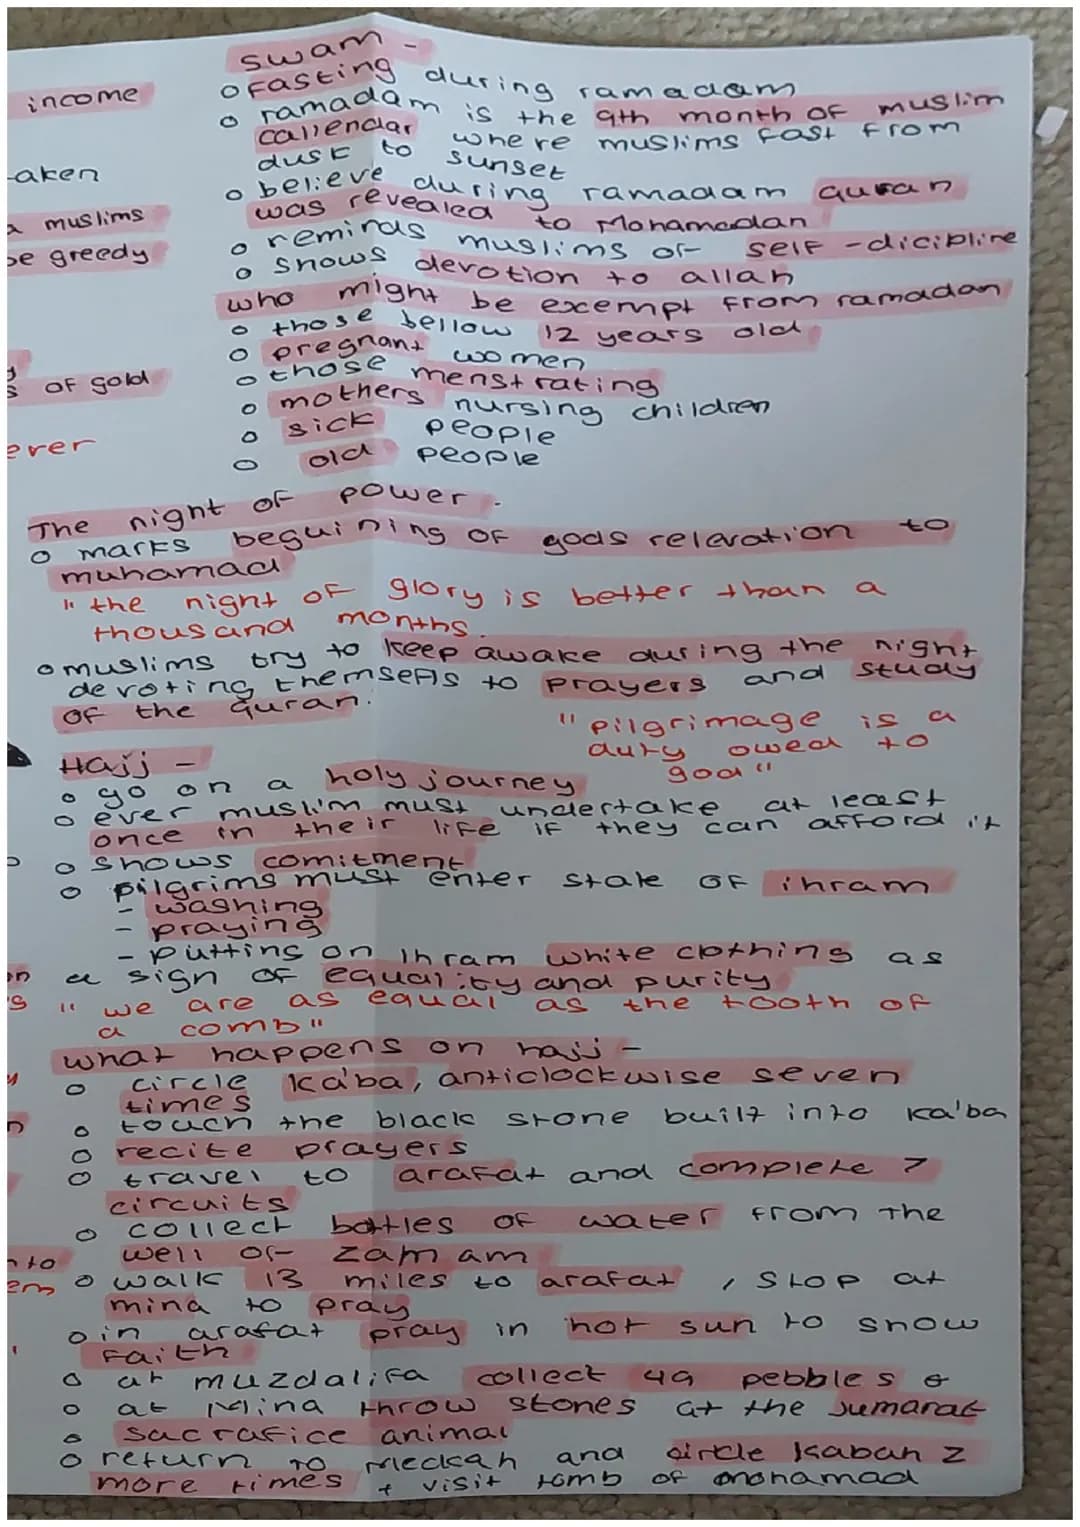 income
aken
a muslims
be greedy
s of gold
erer
swam -
o fasting during ramadam
o ramadam is the 9th month of muslim
callendar where muslims fast from
dusk to sunset
o believe during ramadam quran
was revealed to Mohamadan
o reminds muslims of self-dicipline
o shows devotion to allah
who might be exempt from ramadan
o those bellow 12 years old
o pregnant women
o those menstrating
o mothers nursing children
o sick people
o old people
The night of power.
o marks beguining of gods relevation to
muhamad
"the night of glory is better than a
thousand months.
o muslims try to keep awake during the night
devoting themselfs to prayers and study
of the quran.
"pilgrimage is a
duty owed to
god"
Hajj -
o go on a holy journey
o ever muslim must undertake at least
once in their life if they can afford it
o shows comitment
o pilgrims must enter state of ihram
- washing
- praying
- putting on Ihram white clothing as
a sign of equality and purity
"we are as equal as the tooth of
a comb"
what happens on hajj -
o circle ka'ba, anticlockwise seven
times
o touch the black stone built into ka'ba
o recite prayers
o travel to arafat and complete 7
circuits
o collect bottles of water from the
well of zam am
o walk 13 miles to arafat, stop at
mina to pray
o in arafat pray in hot sun to show
faith
o at muzdalifa collect 49 pebbles &
o at Mina throw stones at the Jumarat
o sacrafice animal
o return to Meckah and circle kabah 2
more times + visit tomb of mohamad